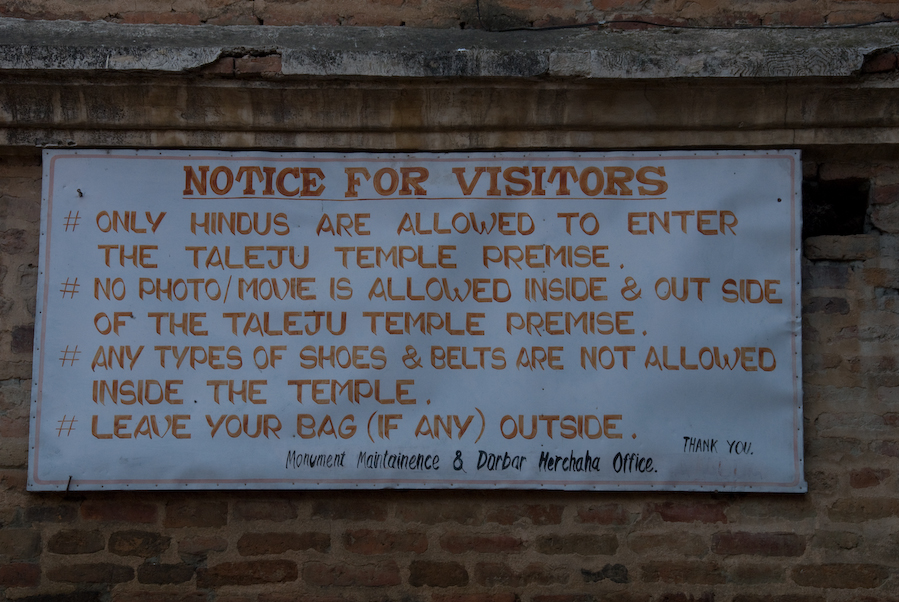 NOTICE FOR VISITORS
# ONLY HINDUS ARE ALLOWED TO ENTER
THE TALEJU TEMPLE PREMISE.
# NO PHOTO/MOVIE IS ALLOWED INSIDE & OUT SIDE
OF THE TALEJU TEMPLE PREMISE.
# ANY TYPES OF SHOES & BELTS ARE NOT ALLOWED
INSIDE. THE TEMPLE.
# LEAVE YOUR BAG (IF ANY) OUTSIDE.
THANK YOU.
Monument Maintainence & Darbar Herchaha Office.